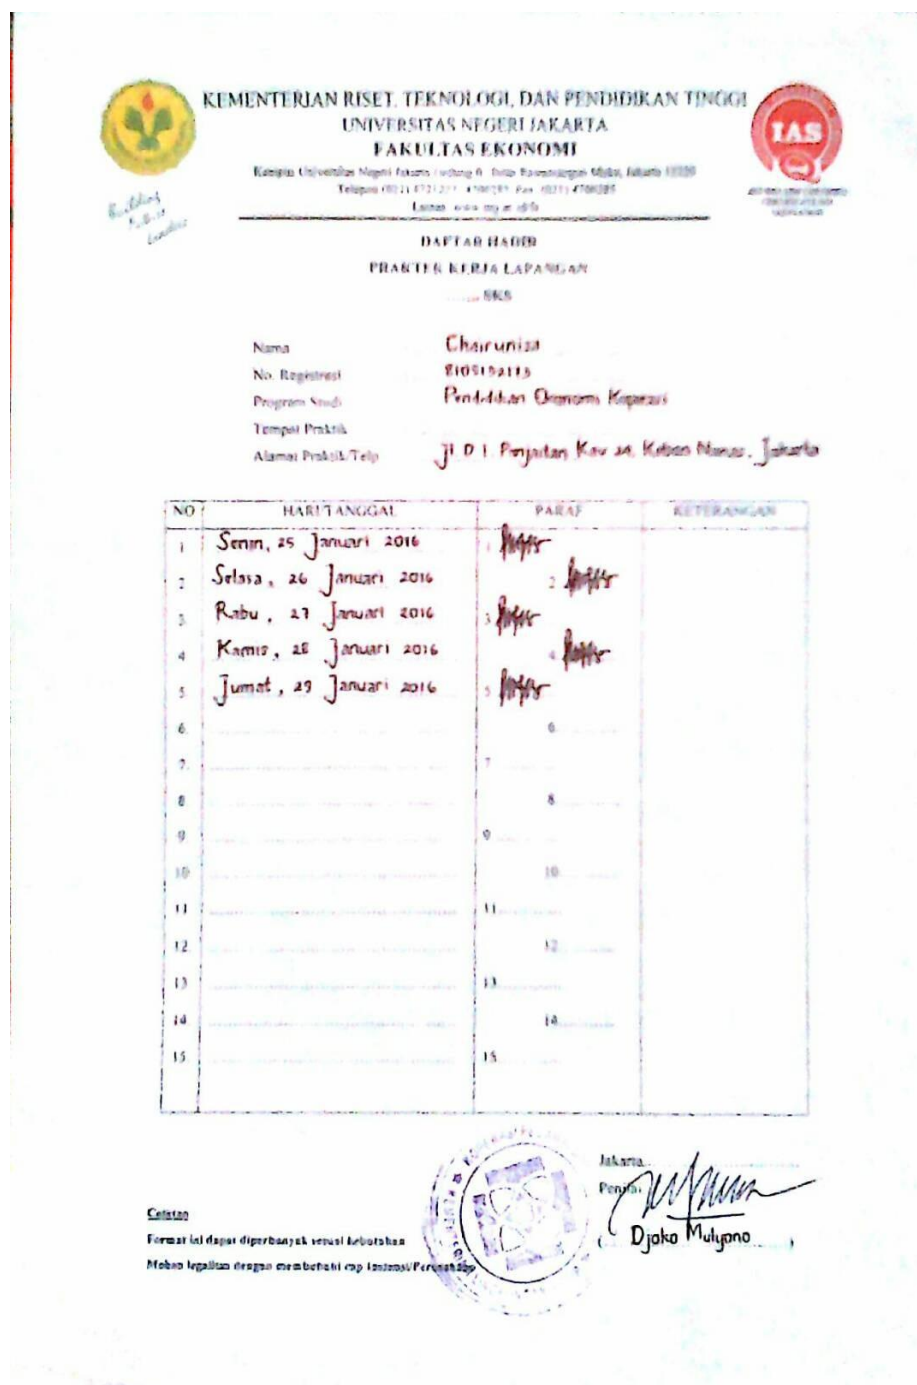 KEMENTERIAN RISET, TEKNOLOGI, DAN PENDIDIKAN TINGGI
UNIVERSITAS NEGERI JAKARTA
FAKULTAS EKONOMI
Kampus Universitas Negeri Jakarta Gedung R, Jalan Rawamangun Muka, Jakarta 13220
IAS
Building
Future
Leaders
DAFTAR HADIR
PRAKTEK KERJA LAPANGAN
........ SKS
Nama Chairunisa
No. Registrasi
Program Studi Pendidikan Ekonomi Koperasi
Tempat Praktik
Alamat Praktik/Telp Jl. D.I. Panjaitan Kav Kebon Nanas, Jakarta
NO HARI/TANGGAL PARAF KETERANGAN
1 Senin, 25 Januari 2016 1
2 Selasa, 26 Januari 2016 2
3. Rabu, 27 Januari 2016 3
4 Kamis, 28 Januari 2016 4
5 Jumat, 29 Januari 2016 5
6. 6
7. 7
8 8
9 9
10 10
11 11
12. 12
13 13
14 14
15 15
Jakarta,
Penilai
( Djoko Mulyono )
Catatan
Format ini dapat diperbanyak sesuai kebutuhan
Mohon legalitas dengan membubuhi cap Instansi/Perusahaan